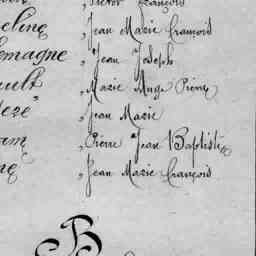 Victor François
eline , Jean Marie François
emagne , Jean Joseph
ault , Marie Ange Pierre
, Jean Marie
am , Pierre Jean Baptiste
, Jean Marie François
B